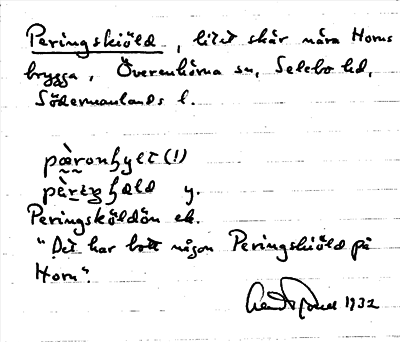 Peringskiöld, litet skär nära Horns
brygga, Överenhörna sn, Selebo hd,
Södermanlands l.
pæ̀ronʃylt (!)
pæ̀riŋʃœld y.
Peringsköldön ek.
"Det har bott någon Peringskiöld på
Horn".
1932